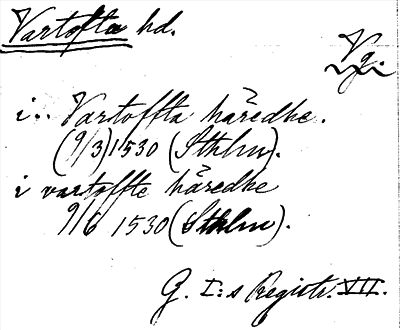 Vartofta hd.
Vg.
i.. Vartoffta häredhe.
(9/3) 1530 (Sthlm).
i vartoffte häredhe
9/6 1530 (Sthlm).
G. I:s Registr. VII.